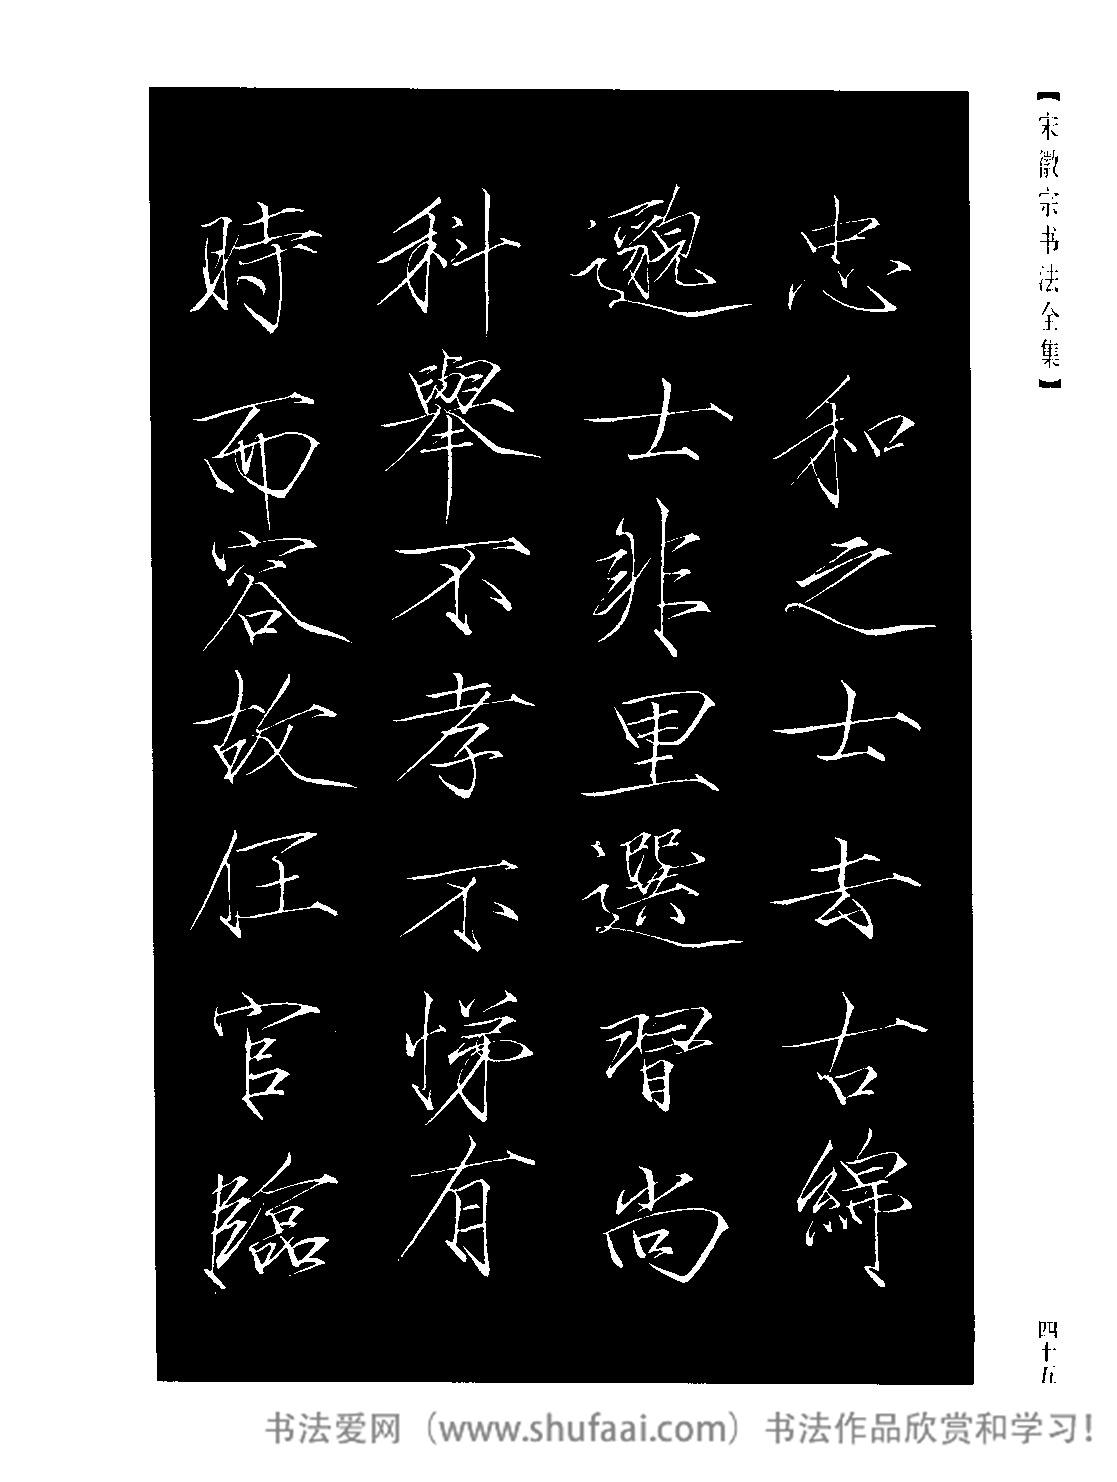 【宋徽宗书法全集】
忠和之士去古綿
邈士非里選習尚
科舉不孝不悌有
時而容故任官臨
四十五
书法爱网（www.shufaai.com）书法作品欣赏和学习！